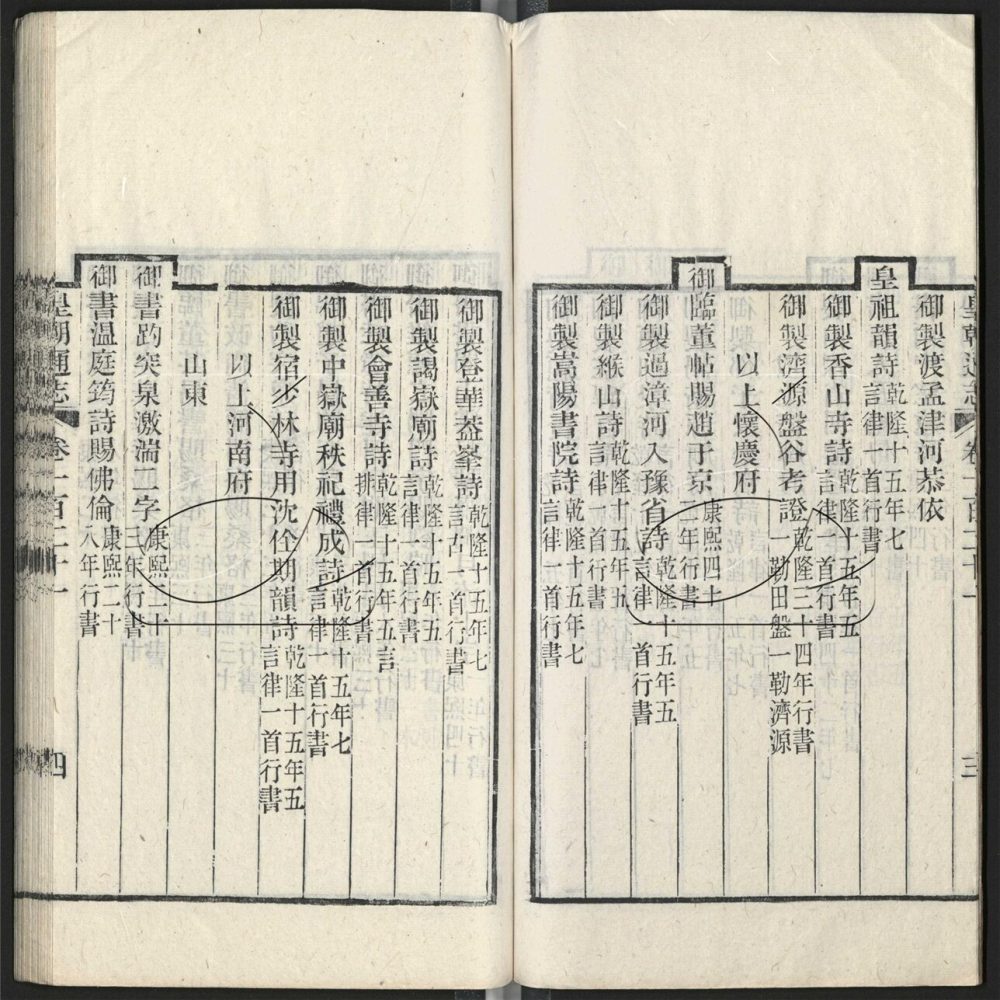 御製渡孟津河恭依
皇祖韻詩乾隆十五年七言律一首行書
御製香山寺詩乾隆十五年五言律一首行書
御製濟源盤谷考證乾隆三十四年行書一勒田盤一勒濟源
以上懷慶府
御臨董帖賜趙于京康熙四十二年行書
御製過漳河入豫省詩乾隆十五年五言律一首行書
御製緱山詩乾隆十五年五言律一首行書
御製嵩陽書院詩乾隆十五年七言律一首行書
御製登華蓋峯詩乾隆十五年七言古一首行書
御製謁嶽廟詩乾隆十五年五言律一首行書
御製會善寺詩乾隆十五年五言排律一首行書
御製中嶽廟秩祀禮成詩乾隆十五年七言律一首行書
御製宿少林寺用沈佺期韻詩乾隆十五年五言律一首行書
以上河南府
山東
御書趵突泉激湍二字康熙二十三年行書
御書溫庭筠詩賜佛倫康熙二十八年行書
皇朝通志 卷一百二十一 四